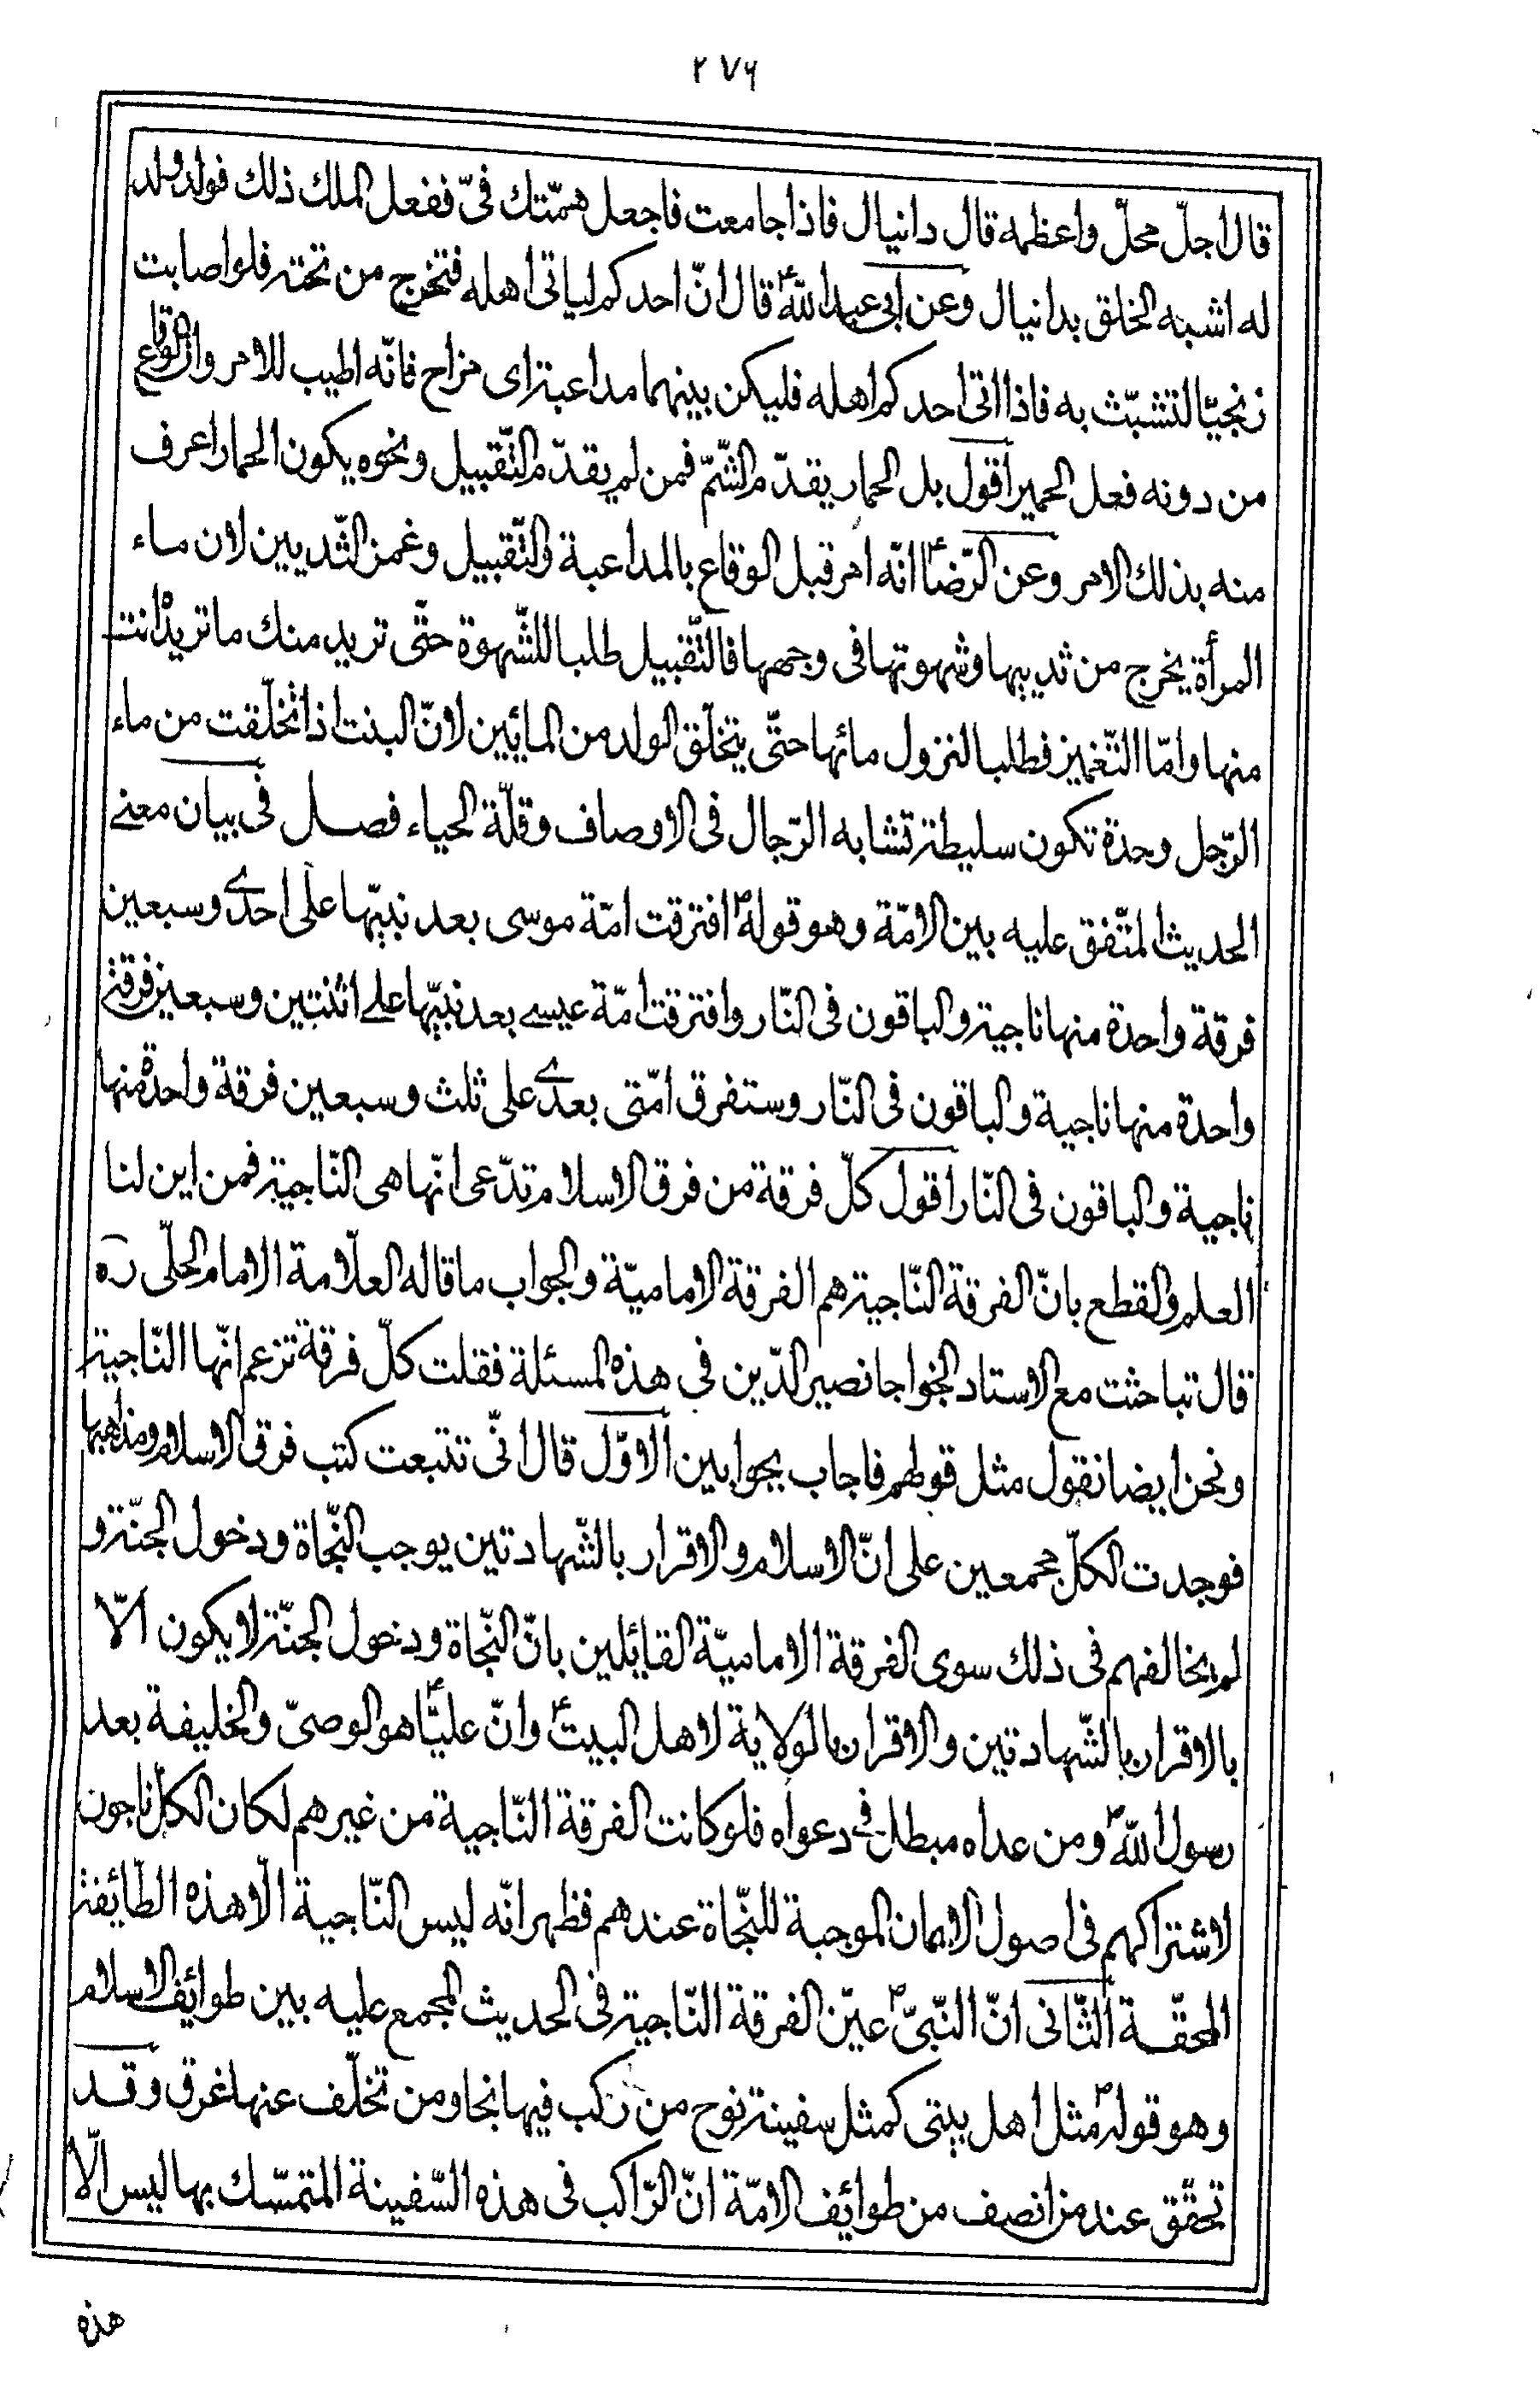 ٢٧٦
قال اجلّ محلّ واعظمه قال دانيال فاذا جامعت فاجعل همّتك فىّ ففعل الملك ذلك فولد ولد
له اشبه الخلق بدانيال وعن ابى عبدالله ع قال انّ احدكم لياتى اهله فتخرج من تحته فلو اصابت
زنجيّا لتشبّث به فاذا اتى احدكم اهله فليكن بينهما مداعبة اى مزاح فانّه اطيب للامر وانّ الوقاع
من دونه فعل الحمير اقول بل الحمار يقدّم الشّمّ فمن لم يقدّم التّقبيل ونحوه يكون الحمار اعرف
منه بذلك الامر وعن الرّضا ع انّه امر قبل الوقاع بالمداعبة والتّقبيل وغمز الثّديين لان ماء
المرأة يخرج من ثدييها وشهوتها فى وجهها فالتّقبيل طلبا للشّهوة حتّى تريد منك ما تريد انت
منها وامّا التّغميز فطلبا لنزول مائها حتّى يتخلّق الولد من المائين لانّ البنت اذا تخلّقت من ماء
الرّجل وحدة تكون سليطة تشابه الرّجال فى الاوصاف وقلّة الحياء فصل فى بيان معنے
الحديث المتّفق عليه بين الامّة وهو قوله ص افترقت امّة موسى بعد نبيّها على احدے وسبعين
فرقة واحدة منها ناجية والباقون فى النّار وافترقت امّة عيسے بعد نبيّها علے اثنتين وسبعين فرقة
واحدة منها ناجية والباقون فى النّار وستفرق امّتى بعدے على ثلث وسبعين فرقة واحدة منها
ناجية والباقون فى النّار اقول كلّ فرقة من فرق الاسلام تدّعى انّها هى النّاجية فمن اين لنا
العلم والقطع بانّ الفرقة النّاجية هم الفرقة الاماميّة والجواب ما قاله العلّامة الامام الحلّى ره
قال تباحثت مع الاستاد الخواجا نصير الدّين فى هذه المسئلة فقلت كلّ فرقة تزعم انّها النّاجية
ونحن ايضا نقول مثل قولهم فاجاب بجوابين الاوّل قال انّى تتبعت كتب فرق الاسلام ومذاهبها
فوجدت الكلّ مجمعين على انّ الاسلام والاقرار بالشّهادتين يوجب النّجاة ودخول الجنّة و
لم يخالفهم فى ذلك سوى الفرقة الاماميّة القايلين بانّ النّجاة ودخول الجنّة لا يكون الّا
بالاقرار بالشّهادتين والاقرار بالولاية لاهل البيت ع وانّ عليّا ع هو الوصىّ والخليفة بعد
رسول الله ص ومن عداه مبطل فى دعواه فلو كانت الفرقة النّاجية من غيرهم لكان الكلّ ناجون
لاشتراكهم فى اصول الايمان الموجبة للنّجاة عندهم فظهر انّه ليس النّاجية الّا هذه الطّايفة
المحقّة الثّانى انّ النّبىّ ص عيّن الفرقة النّاجية فى الحديث المجمع عليه بين طوايف الاسلام
وهو قوله ص مثل اهل بيتى كمثل سفينة نوح من ركب فيها نجا ومن تخلّف عنها غرق وقد
تحقّق عند من انصف من طوائف الامّة انّ الرّاكب فى هذه السّفينة المتمسّك بها ليس الّا
هذه